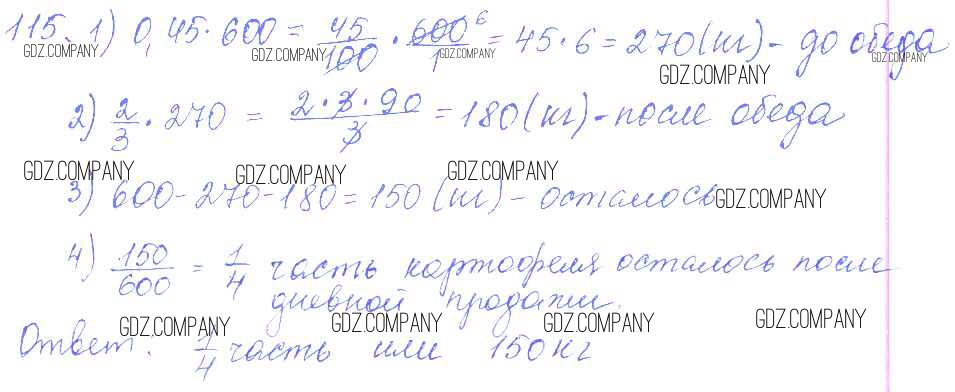 115. 1) 0,45 · 600 = 45/100 · 600/1 6 = 45 · 6 = 270 (кг) - до обеда
GDZ.COMPANY GDZ.COMPANY GDZ.COMPANY GDZ.COMPANY GDZ.COMPANY
2) 2/3 · 270 = 2 · 3 · 90/3 = 180 (кг) - после обеда
GDZ.COMPANY GDZ.COMPANY GDZ.COMPANY
3) 600 - 270 - 180 = 150 (кг) - осталось GDZ.COMPANY
4) 150/600 = 1/4 часть картофеля осталось после
дневной продажи.
GDZ.COMPANY GDZ.COMPANY GDZ.COMPANY GDZ.COMPANY
Ответ: 1/4 часть или 150 кг